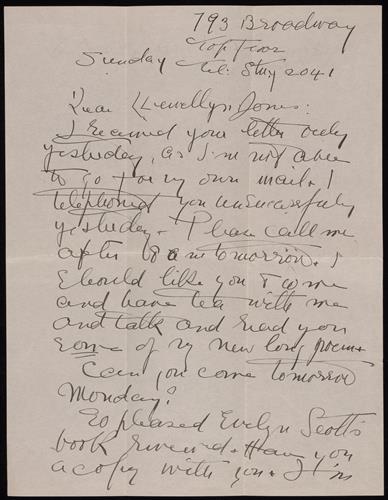 793 Broadway
Top Floor
Sunday Tel: Stuy 2041
Dear Llewellyn Jones:
I received your letter only
yesterday, as I'm not able
to go for my own mail. I
telephoned you unsuccessfully
yesterday. Please call me
after 10 a m tomorrow. I
should like you to come
and have tea with me
and talk and read you
some of my new long poem.
Can you come tomorrow
Monday?
So pleased Evelyn Scott's
book received. Have you
a copy with you. I'm